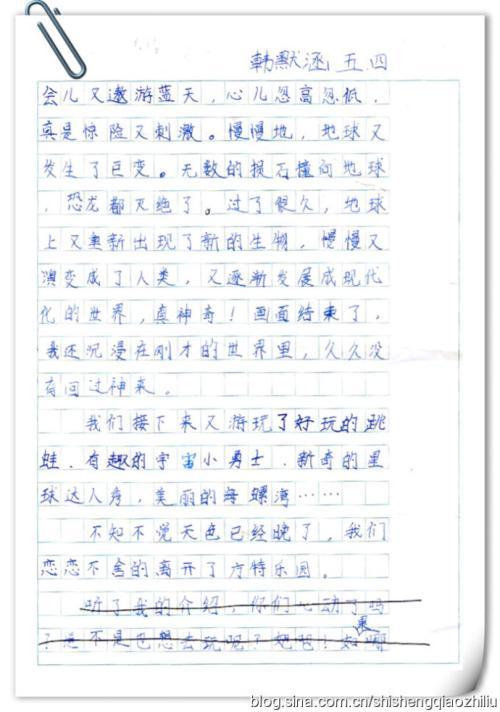 韩默涵 五.四
会儿又遨游蓝天，心儿忽高忽低，
真是惊险又刺激。慢慢地，地球又
发生了巨变。无数的损石撞向地球
，恐龙都灭绝了。过了很久，地球
上又重新出现了新的生物，慢慢又
演变成了人类，又逐渐发展成现代
化的世界，真神奇！画面结束了，
我还沉浸在刚才的世界里，久久没
有回过神来。
我们接下来又游玩了好玩的跳
蛙．有趣的宇宙小勇士．新奇的星
球达人秀，美丽的海螺湾……
不知不觉天色已经晚了，我们
恋恋不舍的离开了方特乐园。
听了我的介绍，你们心动了吗
？是不是也想去玩呢？吧！如果哪
blog.sina.com.cn/shishengqiaozhiliu